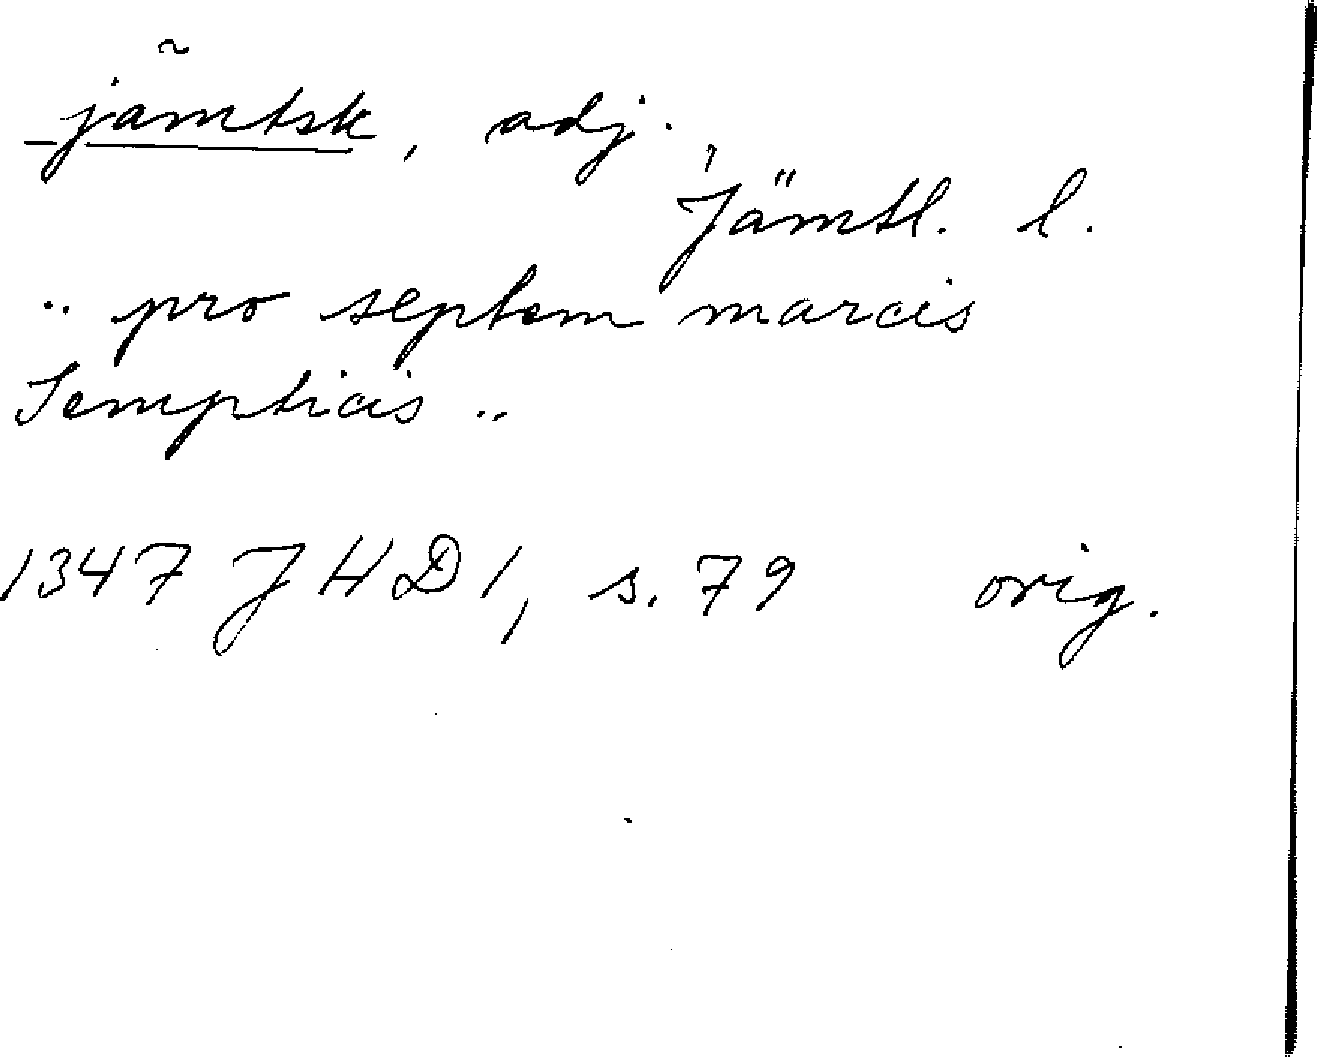 jämtsk, adj.
Jämtl. l.
.. pro septem marcis
Jempticis ..
1347 JHD 1, s. 79 orig.